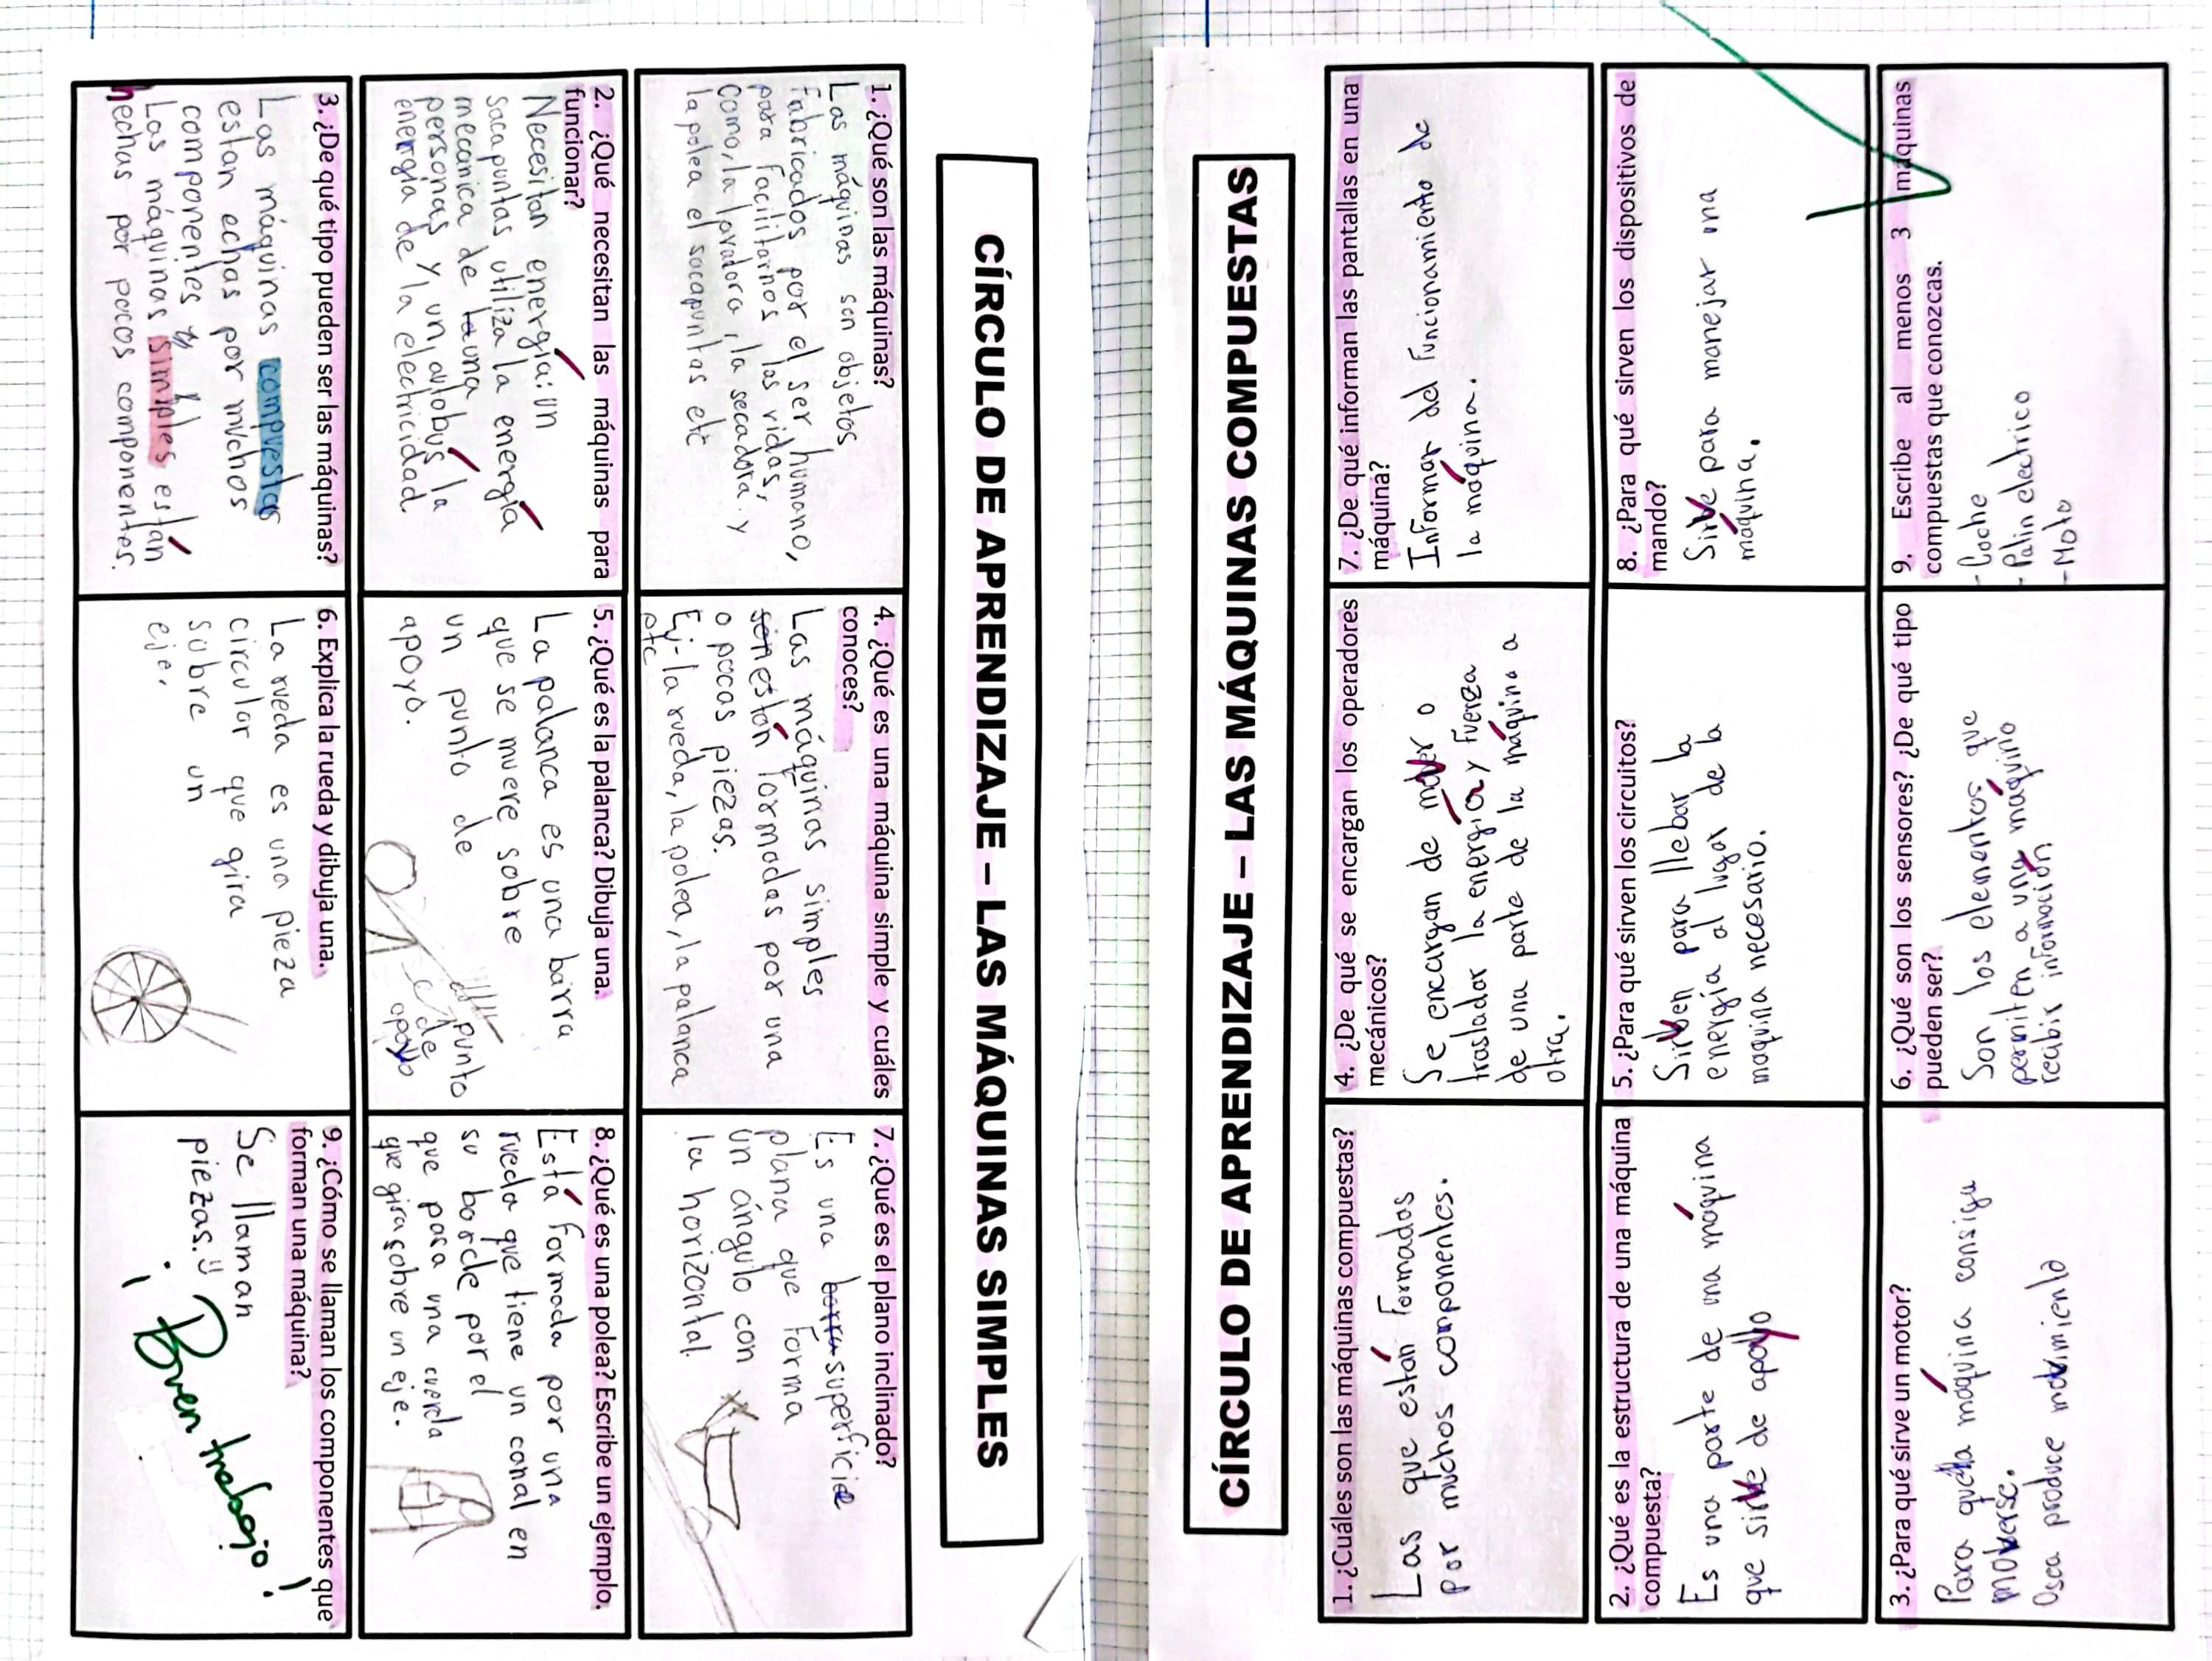 CÍRCULO DE APRENDIZAJE – LAS MÁQUINAS SIMPLES
1. ¿Qué son las máquinas?
Las máquinas son objetos
fabricados por el ser humano,
para facilitarnos las vidas,
como, la lavadora, la secadora y
la polea el sacapuntas etc
4. ¿Qué es una máquina simple y cuáles
conoces?
Las máquinas simples
están formadas por una
o pocas piezas.
Ej-la rueda, la polea, la palanca
etc
7. ¿Qué es el plano inclinado?
Es una barra superficie
plana que forma
un ángulo con
la horizontal.
2. ¿Qué necesitan las máquinas para
funcionar?
Necesitan energía: un
sacapuntas utiliza la energía
mecanica de la una
personas y un autobus la
energía de la electricidad
5. ¿Qué es la palanca? Dibuja una.
La palanca es una barra
que se muere sobre
un punto de
apoyo.
punto
de
apoyo
8. ¿Qué es una polea? Escribe un ejemplo.
Está formada por una
rueda que tiene un canal en
su borde por el
que pasa una cuerda
que gira sobre un eje.
3. ¿De qué tipo pueden ser las máquinas?
Las máquinas compuestas
estan echas por muchos
componentes y
Las máquinas simples están
hechas por pocos componentes.
6. Explica la rueda y dibuja una.
La rueda es una pieza
circular que gira
sobre un
eje.
9. ¿Cómo se llaman los componentes que
forman una máquina?
Se llaman
piezas.
¡Buen trabajo!
CÍRCULO DE APRENDIZAJE – LAS MÁQUINAS COMPUESTAS
1. ¿Cuáles son las máquinas compuestas?
Las que están formados
por muchos componentes.
4. ¿De qué se encargan los operadores
mecánicos?
Se encargan de mover o
trasladar la energía y fuerza
de una parte de la máquina a
otra.
7. ¿De qué informan las pantallas en una
máquina?
Informar del funcionamiento de
la máquina.
2. ¿Qué es la estructura de una máquina
compuesta?
Es una parte de una máquina
que sirve de apoyo
5. ¿Para qué sirven los circuitos?
Sirven para llebar la
energía al lugar de la
maquina necesario.
8. ¿Para qué sirven los dispositivos de
mando?
Sirve para manejar una
máquina.
3. ¿Para qué sirve un motor?
Para que la máquina consigu
moverse.
Osca produce movimiento
6. ¿Qué son los sensores? ¿De qué tipo
pueden ser?
Son los elementos que
permiten a una máquina
recibir información
9. Escribe al menos 3 máquinas
compuestas que conozcas.
- Coche
- Patin electrico
- Moto